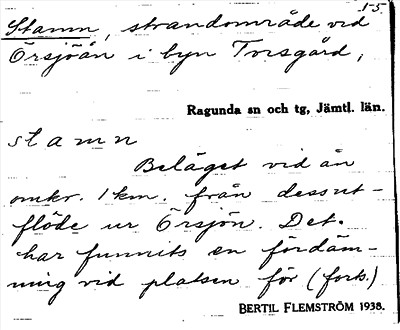 1-5.
Stamn, strandområde vid
Örsjöån i byn Torsgård,
Ragunda sn och tg, Jämtl. län.
stamn
Beläget vid ån
omkr. 1 km. från dessut-
flöde ur Örsjön. Det.
har funnits en fördäm-
ning vid platsen för (forts.)
BERTIL FLEMSTRÖM 1938.